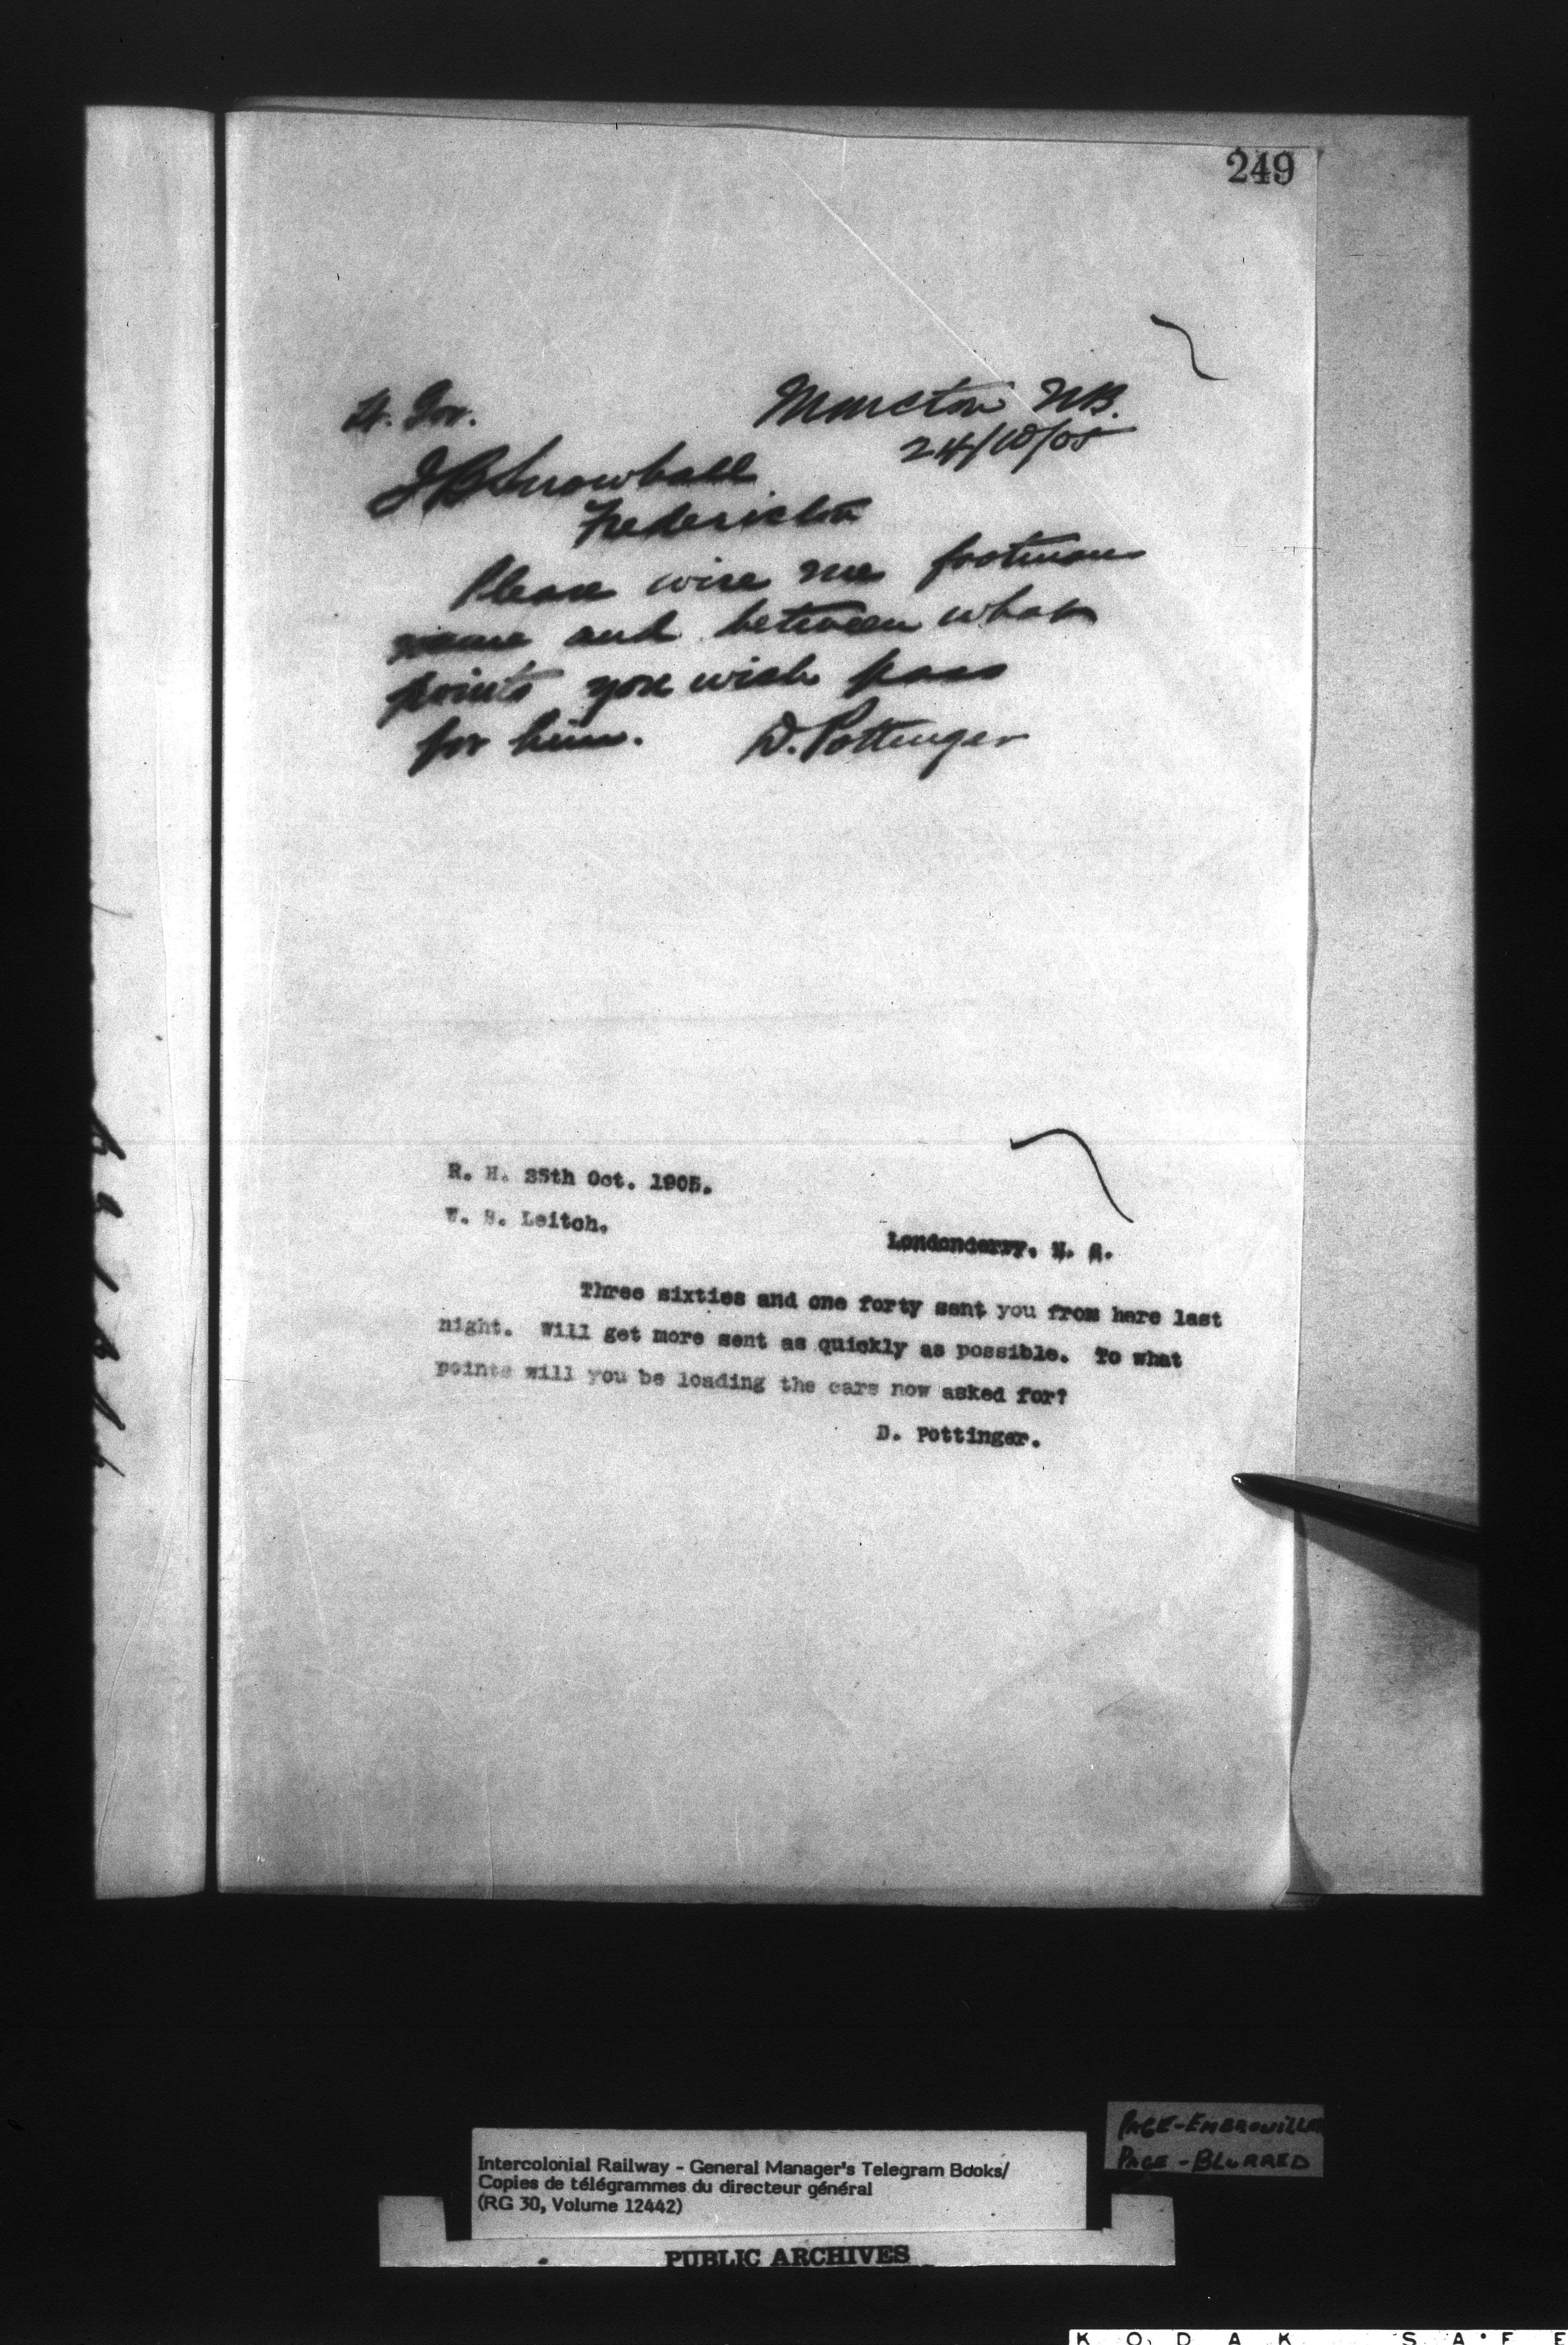 249
Lt. Gov.
Moncton NB.
24/10/05
J B Snowball
Fredericton
Please wire me footmans
name and between what
points you wish pass
for him. D. Pottinger
R. H. 25th Oct. 1905.
W. S. Leitch,
Londonderry, N. S.
Three sixties and one forty sent you from here last
night. Will get more sent as quickly as possible. To what
points will you be loading the cars now asked for?
D. Pottinger.
PAGE-EMBROUILLÉE
PAGE-BLURRED
Intercolonial Railway - General Manager's Telegram Books/
Copies de télégrammes du directeur général
(RG 30, Volume 12442)
PUBLIC ARCHIVES
KODAK SAFE